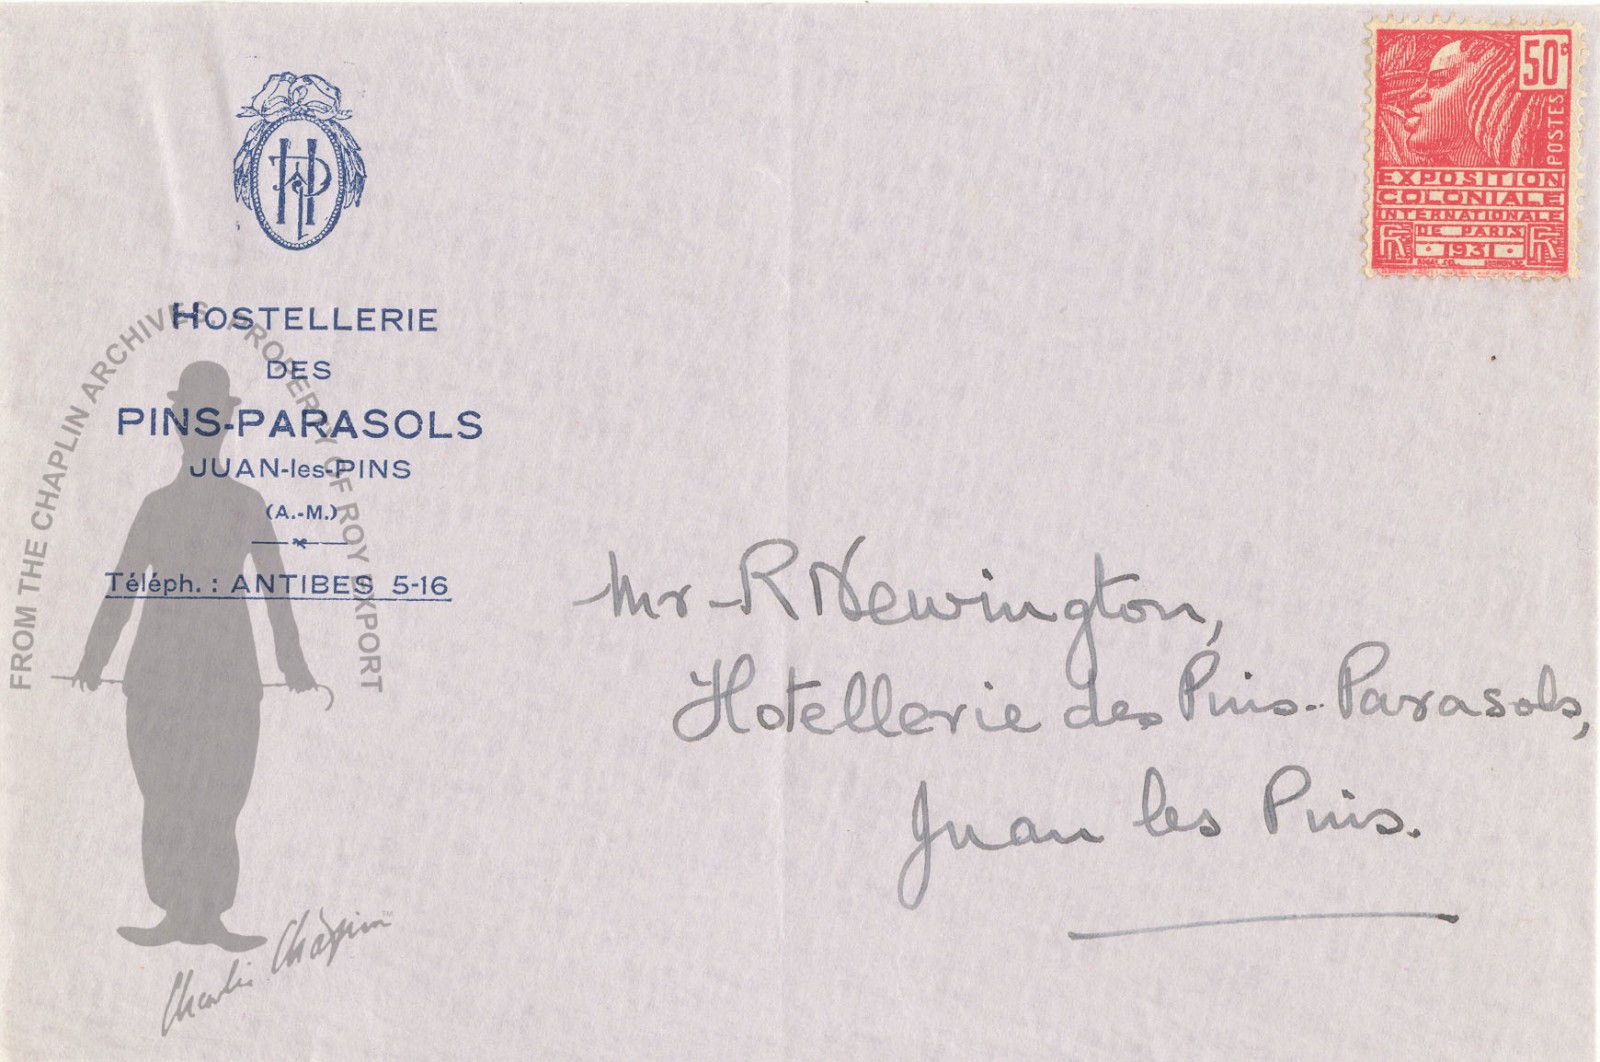 HP
HOSTELLERIE
DES
PINS-PARASOLS
JUAN-les-PINS
(A.-M.)
Téléph. : ANTIBES 5-16
50c
POSTES
EXPOSITION
COLONIALE
INTERNATIONALE
DE PARIS
RF 1931 RF
Mr R Newington,
Hotellerie des Pins-Parasols,
Juan les Pins.
FROM THE CHAPLIN ARCHIVES. PROPERTY OF ROY EXPORT
Charlie Chaplin™